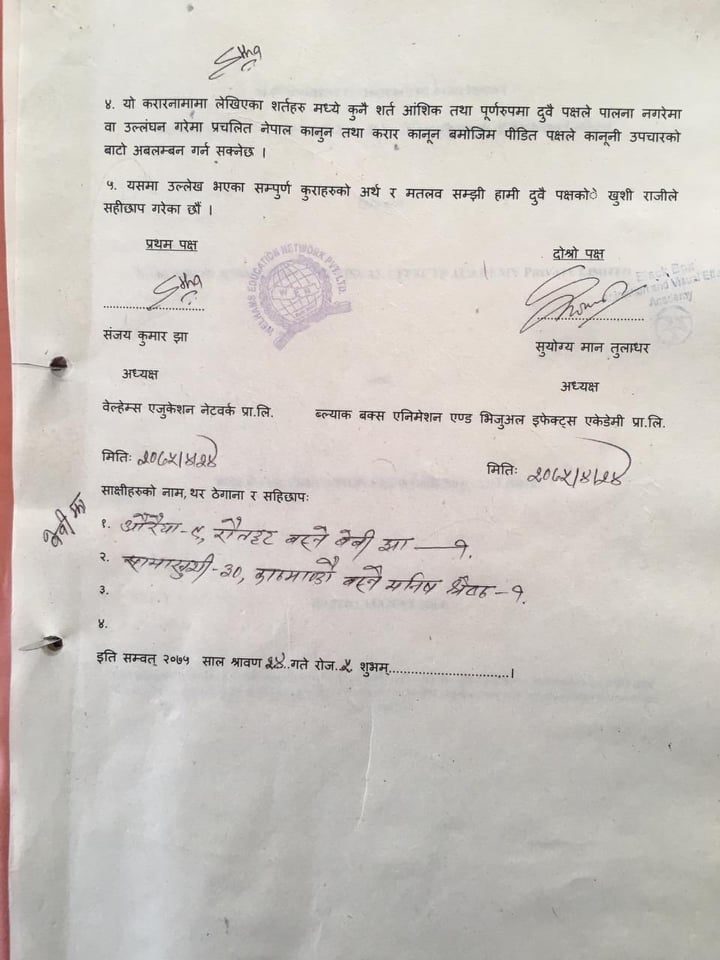 ४. यो करारनामामा लेखिएका शर्तहरु मध्ये कुनै शर्त आंशिक तथा पूर्णरुपमा दुवै पक्षले पालना नगरेमा
वा उल्लंघन गरेमा प्रचलित नेपाल कानुन तथा करार कानून बमोजिम पीडित पक्षले कानूनी उपचारको
बाटो अबलम्बन गर्न सक्नेछ ।
५. यसमा उल्लेख भएका सम्पुर्ण कुराहरुको अर्थ र मतलव सम्झी हामी दुवै पक्षकोे खुशी राजीले
सहीछाप गरेका छौं ।
प्रथम पक्ष
दोश्रो पक्ष
WELHAMS EDUCATION NETWORK PVT. LTD.
Black Box
Animation and Visual Effects
Academy
संजय कुमार झा
सुयोग्य मान तुलाधर
अध्यक्ष
अध्यक्ष
वेल्हेम्स एजुकेशन नेटवर्क प्रा.लि.
ब्ल्याक बक्स एनिमेशन एण्ड भिजुअल इफेक्ट्स एकेडेमी प्रा.लि.
मितिः २०७५/४/२४
मितिः २०७५/४/२४
साक्षीहरुको नाम, थर ठेगाना र सहिछापः
बेबी झा
१. औरैया-९, रौतहट बस्ने बेबी झा —१.
२. सामाखुशी-३०, काठमाण्डौ बस्ने मनिष श्रेष्ठ -१.
३.
४.
इति सम्वत् २०७५ साल श्रावण २४..गते रोज..५ शुभम्...............................।